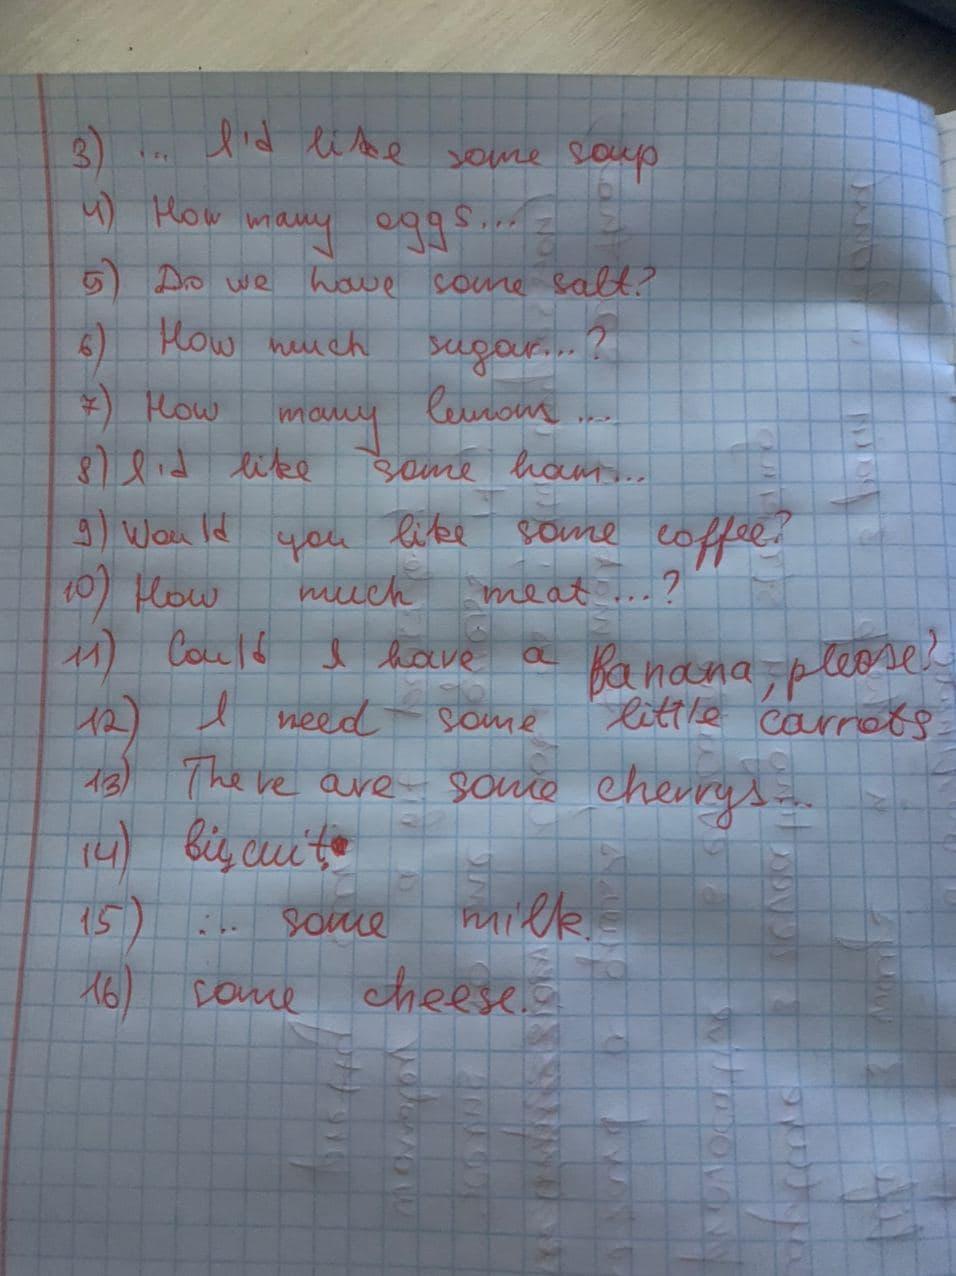 3) ... I'd like some soup
4) How many eggs...
5) Do we have some salt?
6) How much sugar...?
7) How many lemons ...
8) I'd like some ham...
9) Would you like some coffee?
10) How much meat ...?
11) Could I have a Banana, please?
12) I need some little carrots
13) There are some cherrys...
14) biscuit.
15) ... some milk.
16) some cheese.